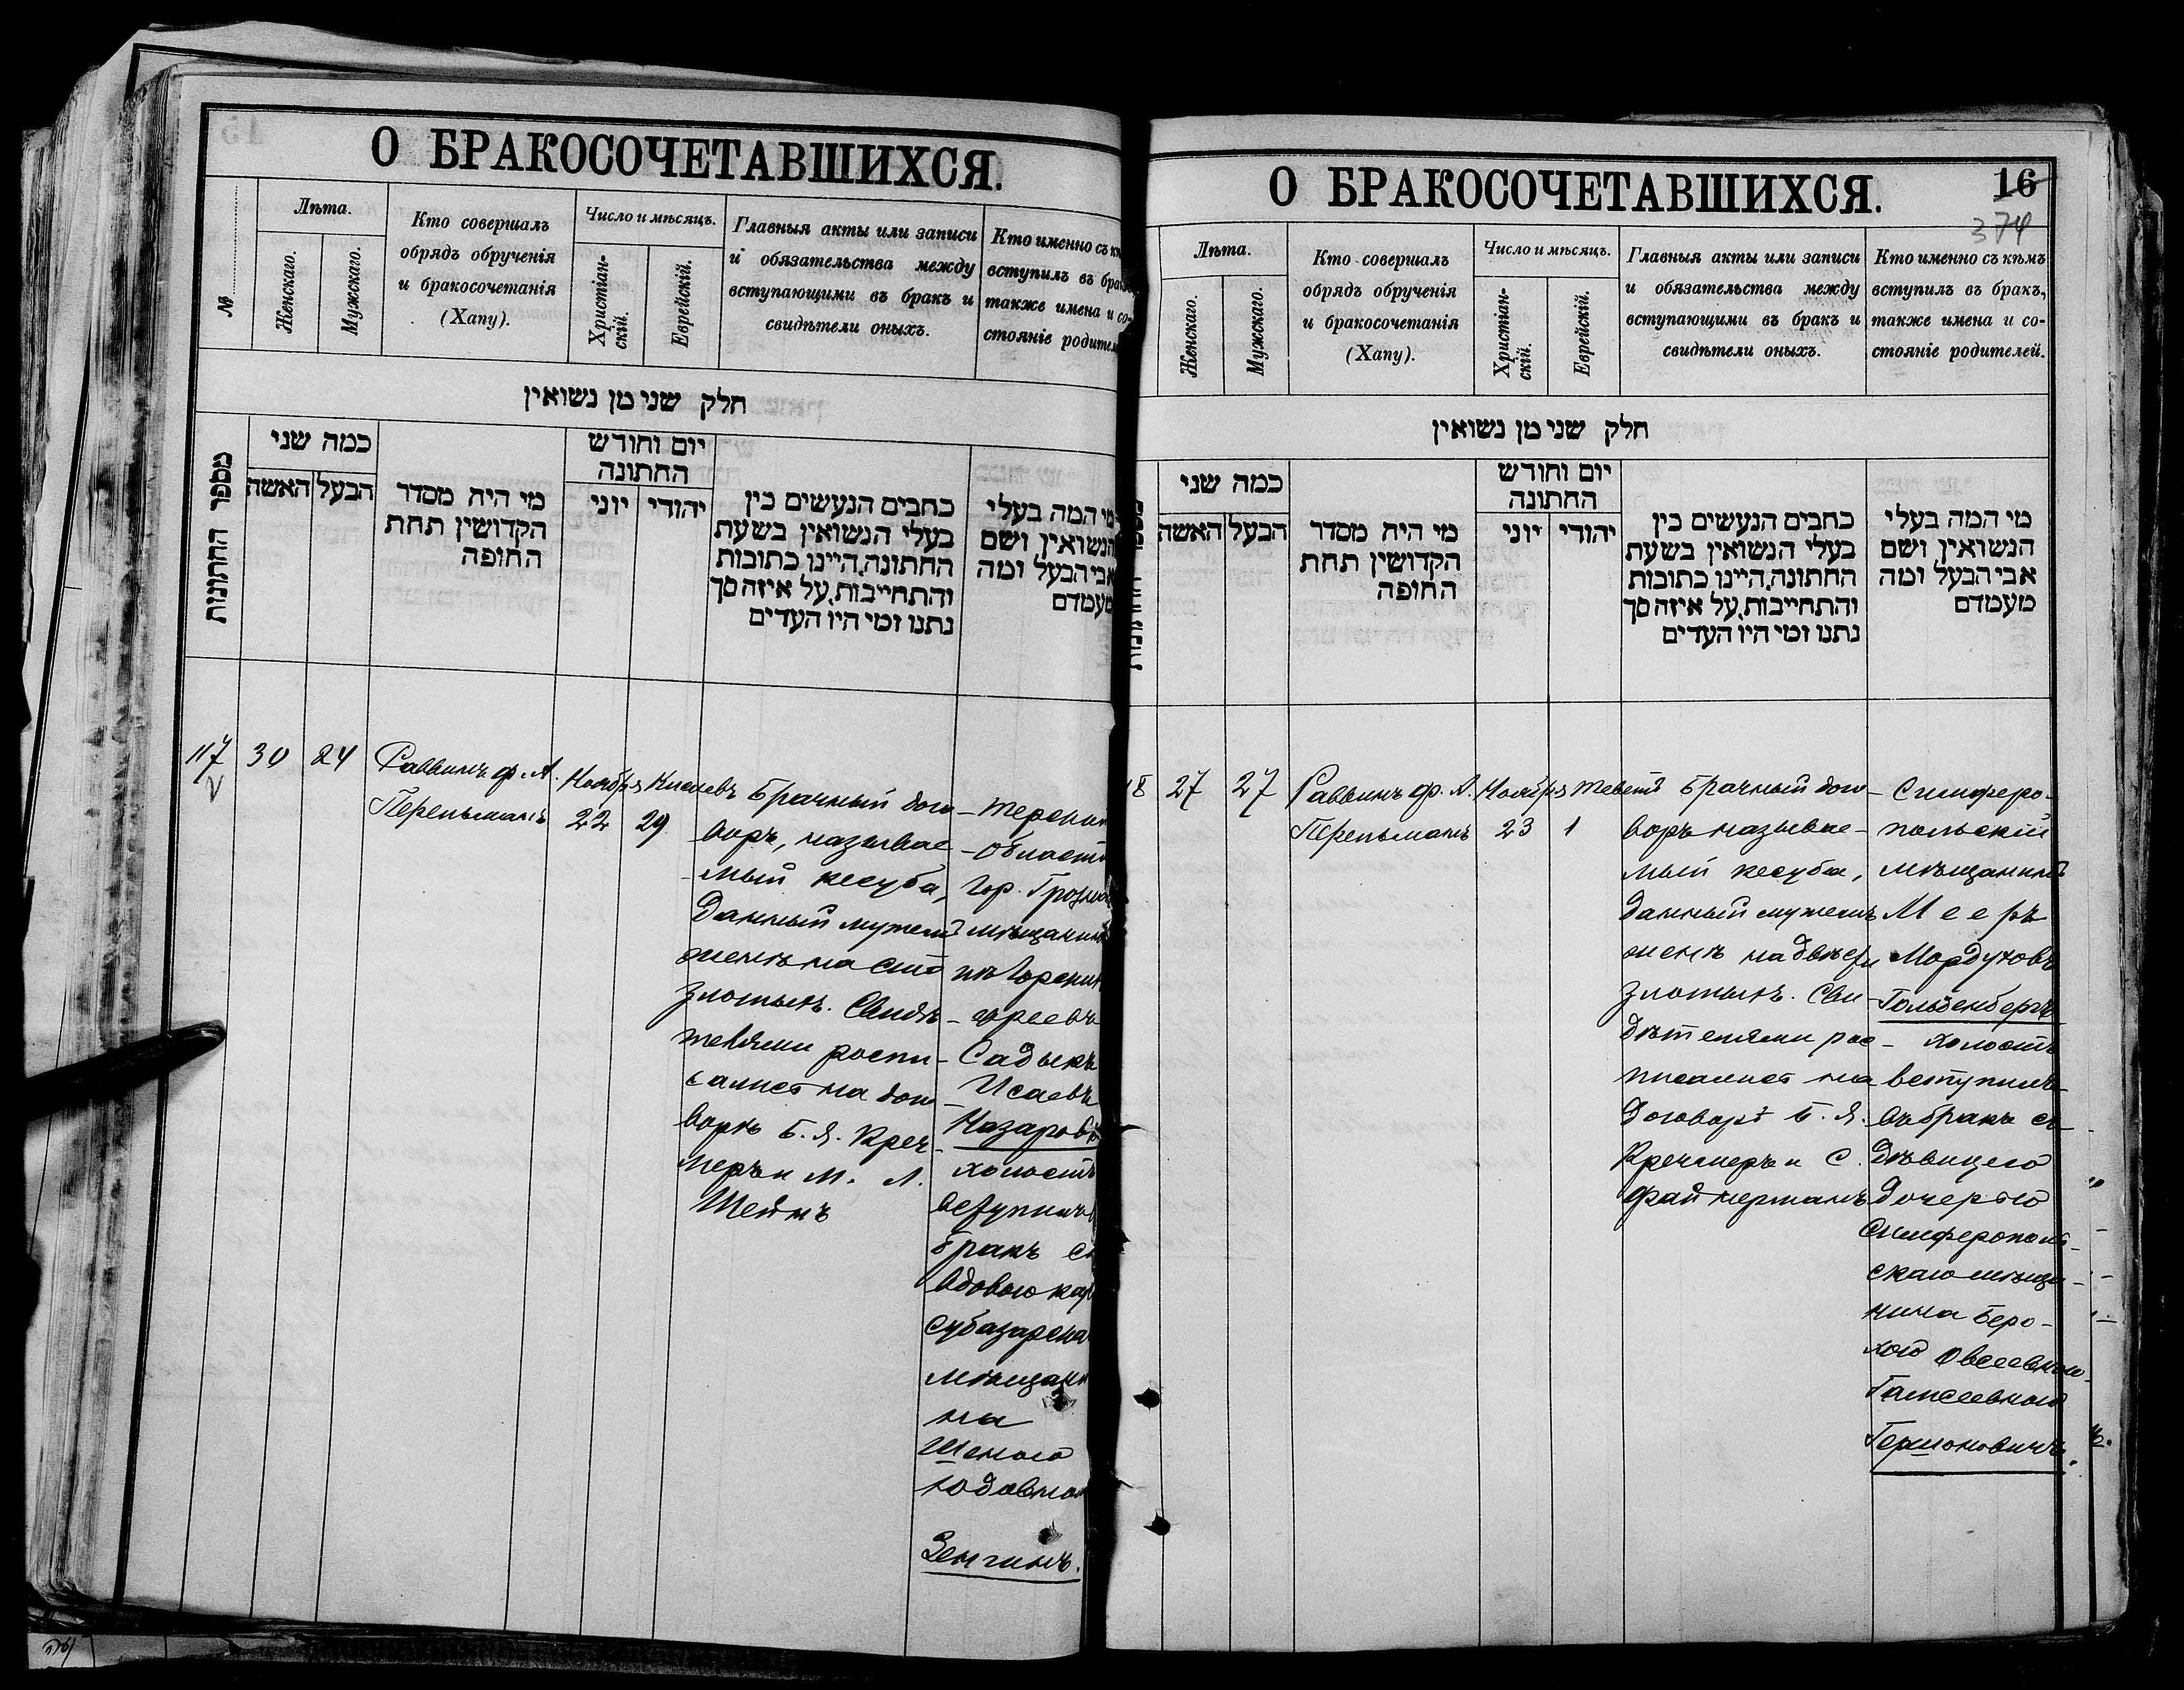 О БРАКОСОЧЕТАВШИХСЯ.
№
Лѣта.
Женскаго.
Мужскаго.
Кто совершалъ
обрядъ обрученія
и бракосочетанія
(Хапу).
Число и мѣсяцъ.
Христіан-
скій.
Еврейскій.
Главныя акты или записи
и обязательства между
вступающими въ бракъ и
свидѣтели оныхъ.
Кто именно съ
вступилъ въ
также имена и со-
стояніе
חלק שני מן נשואין
מספר החתונות
כמה שני
האשה
הבעל
מי היה מסדר
הקדושין תחת
החופה
יום וחודש
החתונה
יוני
יהודי
כתבים הנעשים בין
בעלי הנשואין בשעת
החתונה, היינו כתובות
והתחייבות, על איזה סך
נתנו ומי היו העדים
מי המה בעלי
הנשואין, ושם
אבי הבעל ומה
מעמדם
117
30
24
Раввинъ ф. А.
Перельманъ
Ноября
22
Кислевъ
29
Брачный дого-
воръ, называе-
мый кесуба,
данный мужемъ
женѣ на сто
злотыхъ. Свидѣ-
телями роспи-
сались на дого-
ворѣ Б. Я. Креч-
меръ и М. Л.
Штейнъ
гор.
Садыкъ
Исаевъ
Назаровъ
холостъ
бракъ съ
вдовою
на
Зенгинъ.
О БРАКОСОЧЕТАВШИХСЯ.
16
374
Лѣта.
Женскаго.
Мужскаго.
Кто совершалъ
обрядъ обрученія
и бракосочетанія
(Хапу).
Число и мѣсяцъ.
Христіан-
скій.
Еврейскій.
Главныя акты или записи
и обязательства между
вступающими въ бракъ и
свидѣтели оныхъ.
Кто именно съ кѣмъ
вступилъ въ бракъ,
также имена и со-
стояніе родителей.
חלק שני מן נשואין
כמה שני
האשה
הבעל
מי היה מסדר
הקדושין תחת
החופה
יום וחודש
החתונה
יוני
יהודי
כתבים הנעשים בין
בעלי הנשואין בשעת
החתונה, היינו כתובות
והתחייבות, על איזה סך
נתנו ומי היו העדים
מי המה בעלי
הנשואין, ושם
אבי הבעל ומה
מעמדם
18
27
27
Раввинъ ф. А.
Перельманъ
Ноября
23
Теветъ
1
Брачный дого-
воръ называе-
мый кесуба,
данный мужемъ
женѣ на двѣсти
злотыхъ. Сви-
дѣтелями рос-
писались на
договорѣ Б. Я.
Кречмеръ и С.
Файнерманъ
Симферо-
польскій
мѣщанинъ
Мееръ
Мордуховъ
Гольденбергъ
холостъ
вступилъ
въ бракъ съ
дѣвицею
дочерью
Симферополь-
скаго мѣща-
нина